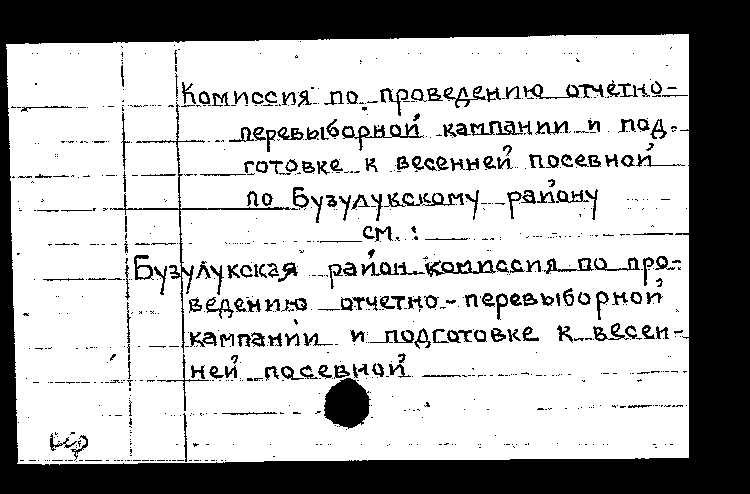 Комиссия по проведению отчетно-
перевыборной кампании и под-
готовке к весенней посевной
по Бузулукскому району
см.:
Бузулукская район. комиссия по про-
ведению отчетно-перевыборной
кампании и подготовке к весен-
ней посевной